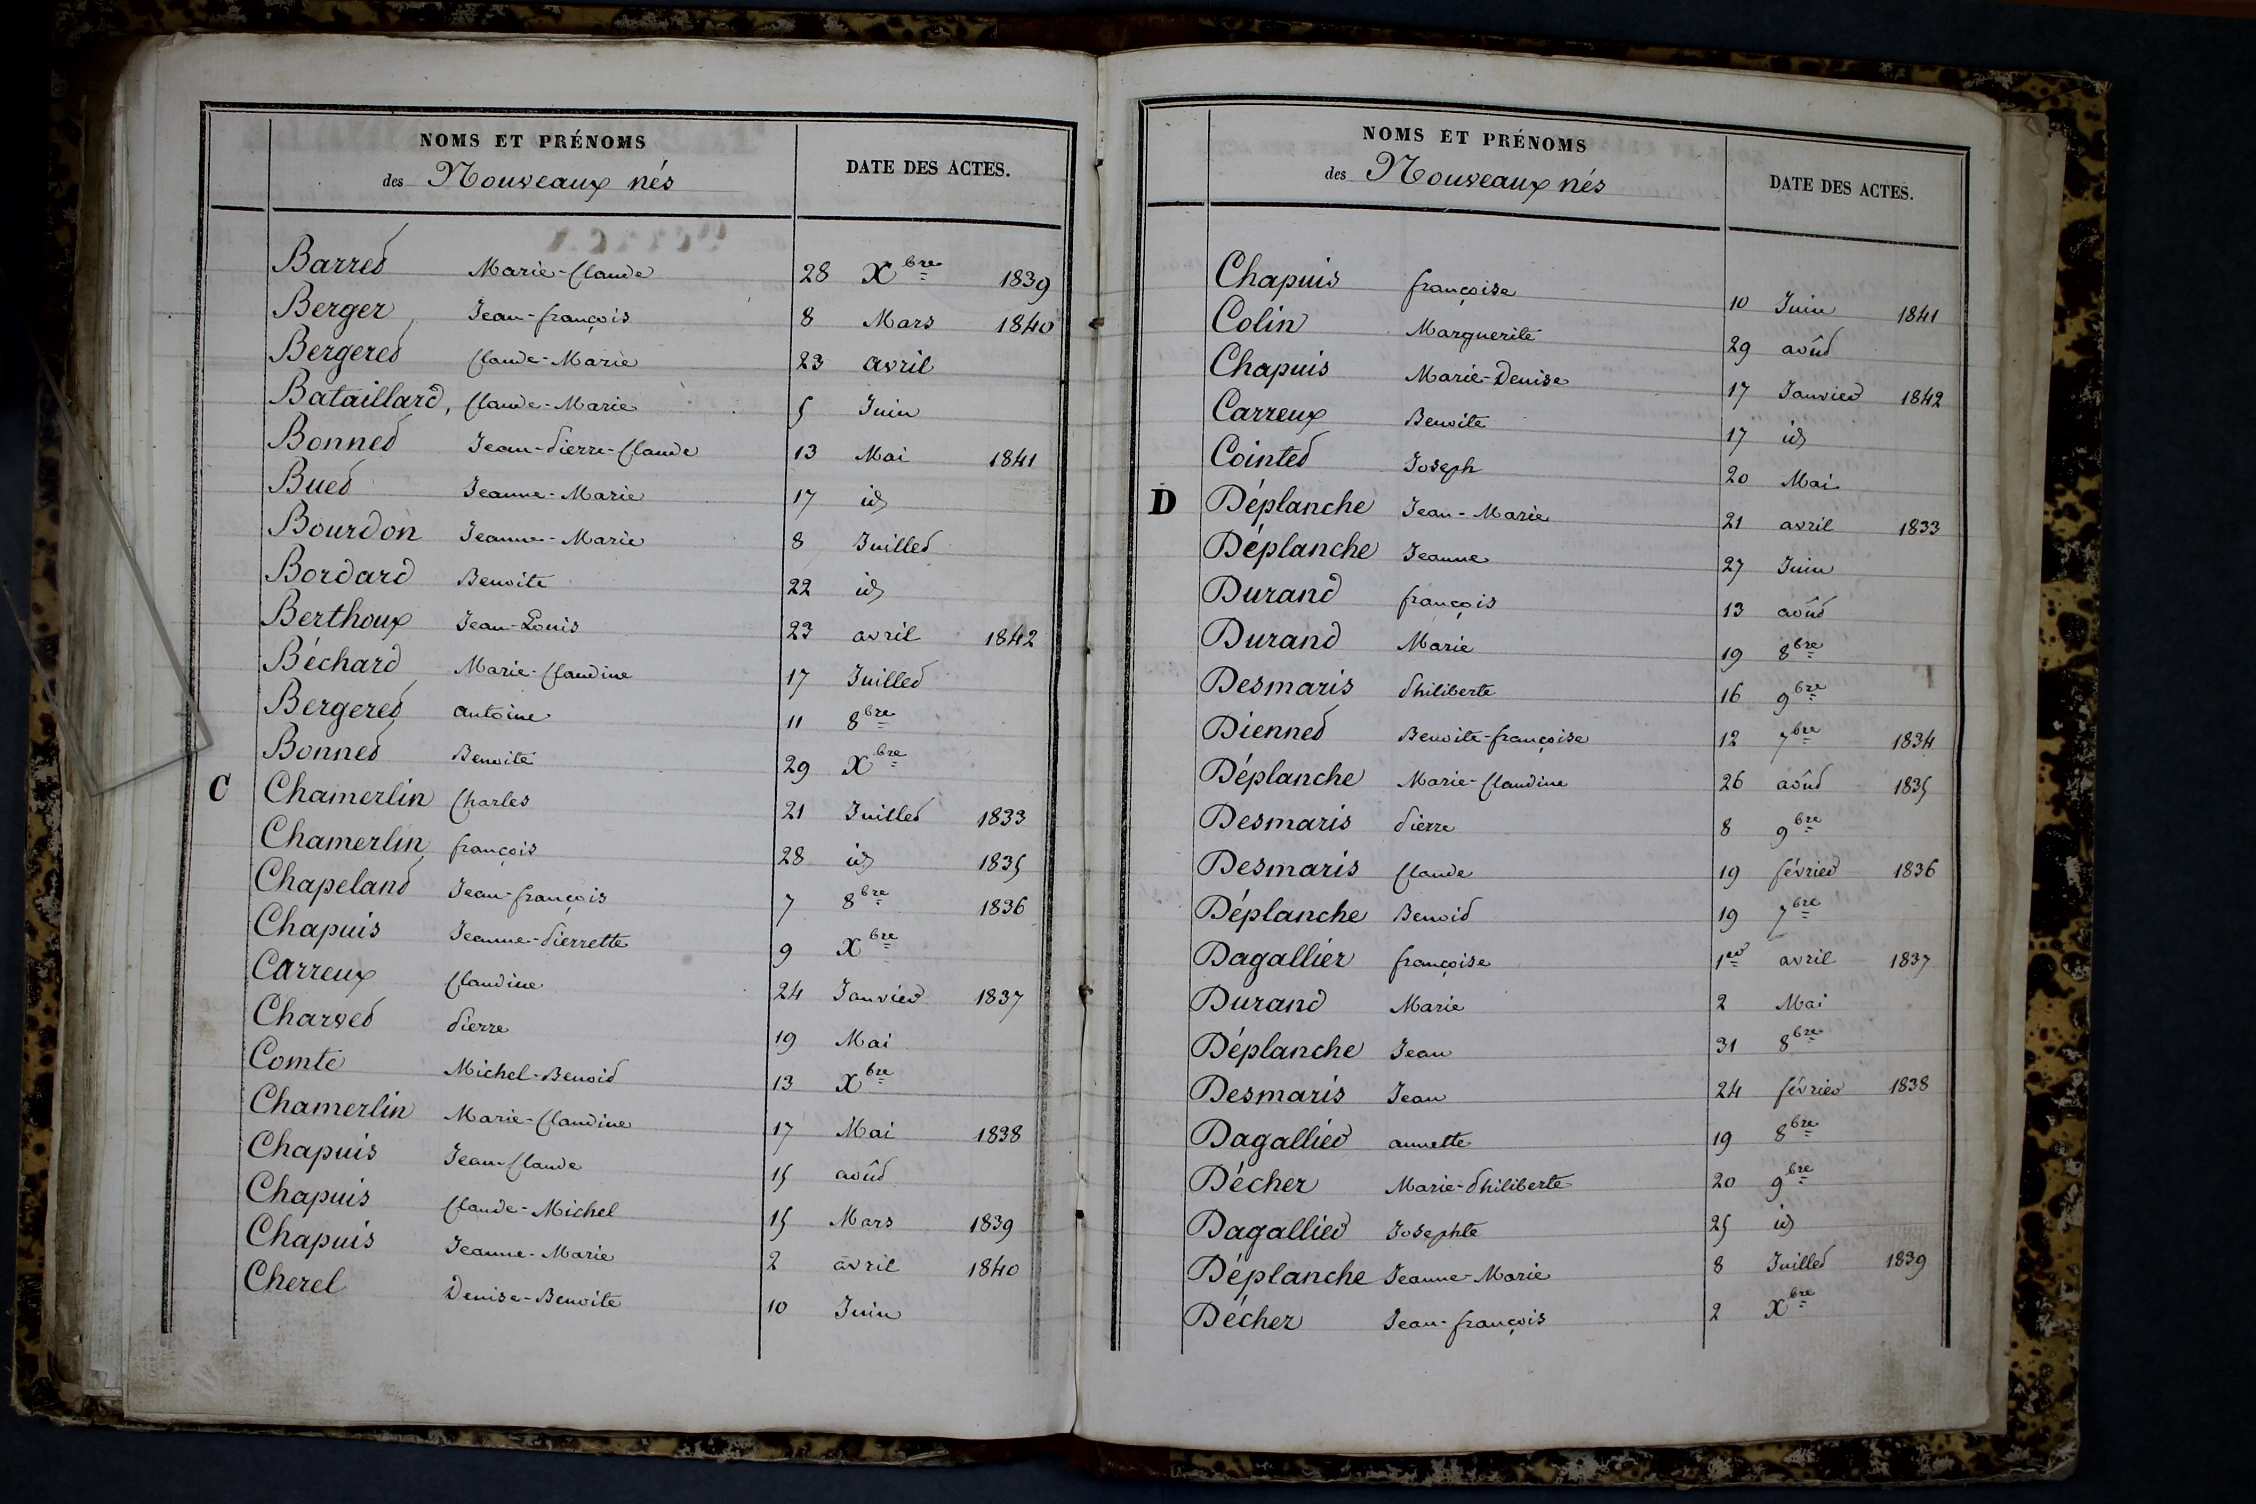 NOMS ET PRÉNOMS
des Nouveaux nés
DATE DES ACTES.
Barret Marie-Claude 28 Xbre 1839
Berger Jean-françois 8 Mars 1840
Bergeret Claude-Marie 23 avril
Bataillard, Claude-Marie 5 Juin
Bonnet Jean-Pierre-Claude 13 Mai 1841
Buet Jeanne-Marie 17 id
Bourdon Jeanne-Marie 8 Juillet
Bordard Benoite 22 id
Berthoux Jean-Louis 23 avril 1842
Béchard Marie-Claudine 17 Juillet
Bergeret antoine 11 8bre
Bonnet Benoite 29 Xbre
C Chamerlin Charles 21 Juillet 1833
Chamerlin françois 28 id 1835
Chapeland Jean-françois 7 8bre 1836
Chapuis Jeanne-Pierrette 9 Xbre
Carreux Claudine 24 Janvier 1837
Charvet Pierre 19 Mai
Comte Michel-Benoit 13 Xbre
Chamerlin Marie-Claudine 17 Mai 1838
Chapuis Jean-Claude 15 août
Chapuis Claude-Michel 15 Mars 1839
Chapuis Jeanne-Marie 2 avril 1840
Cherel Denise-Benoite 10 Juin
NOMS ET PRÉNOMS
des Nouveaux nés
DATE DES ACTES.
Chapuis françoise 10 Juin 1841
Colin Marguerite 29 août
Chapuis Marie-Denise 17 Janvier 1842
Carreux Benoite 17 id
Cointet Joseph 20 Mai
D Déplanche Jean-Marie 21 avril 1833
Déplanche Jeanne 27 Juin
Durand françois 13 août
Durand Marie 19 8bre
Desmaris Philiberte 16 9bre
Diennet Benoite-françoise 12 7bre 1834
Déplanche Marie-Claudine 26 août 1835
Desmaris Pierre 8 9bre
Desmaris Claude 19 février 1836
Déplanche Benoit 19 7bre
Dagallier françoise 1er avril 1837
Durand Marie 2 Mai
Déplanche Jean 31 8bre
Desmaris Jean 24 février 1838
Dagallier annette 19 8bre
Décher Marie-Philiberte 20 9bre
Dagallier Josephte 25 id
Déplanche Jeanne-Marie 8 Juillet 1839
Décher Jean-françois 2 Xbre